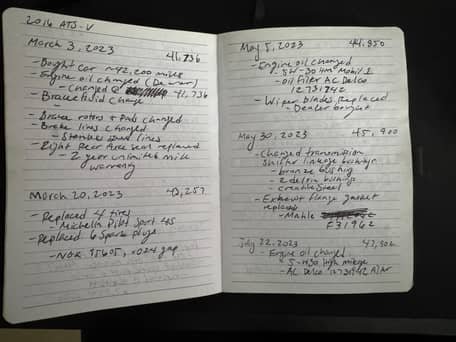 2016 ATS-V
March 3, 2023 41,736
- Bought car ~42,200 miles
- Engine oil changed (Dealer)
- Changed @ 41,736
- Brake fluid change
- Brake rotors + Pads changed
- Brake lines changed
- Stainless steel lines
- Right Rear Axle seal replaced
- 2 year unlimited mile
warranty
March 20, 2023 43,257
- Replaced 4 tires
- Michelin Pilot Sport 4S
- Replaced 6 Spark plugs
- NGK 95605, .024 gap
May 5, 2023 44,850
- Engine oil changed
- Mobil 1
- Oil Filter AC Delco
12731742
- Wiper blades Replaced
- Dealer bought
May 30, 2023 45,900
- Changed transmission
Shifter linkage bushings
- bronze bushing
- 2 delrin bushings
- creative steel
- Exhaust flange gasket
replaced
- Mahle
F31962
July 22, 2023 47,306
- Engine oil changed
- 5-W30 High mileage
- AC Delco